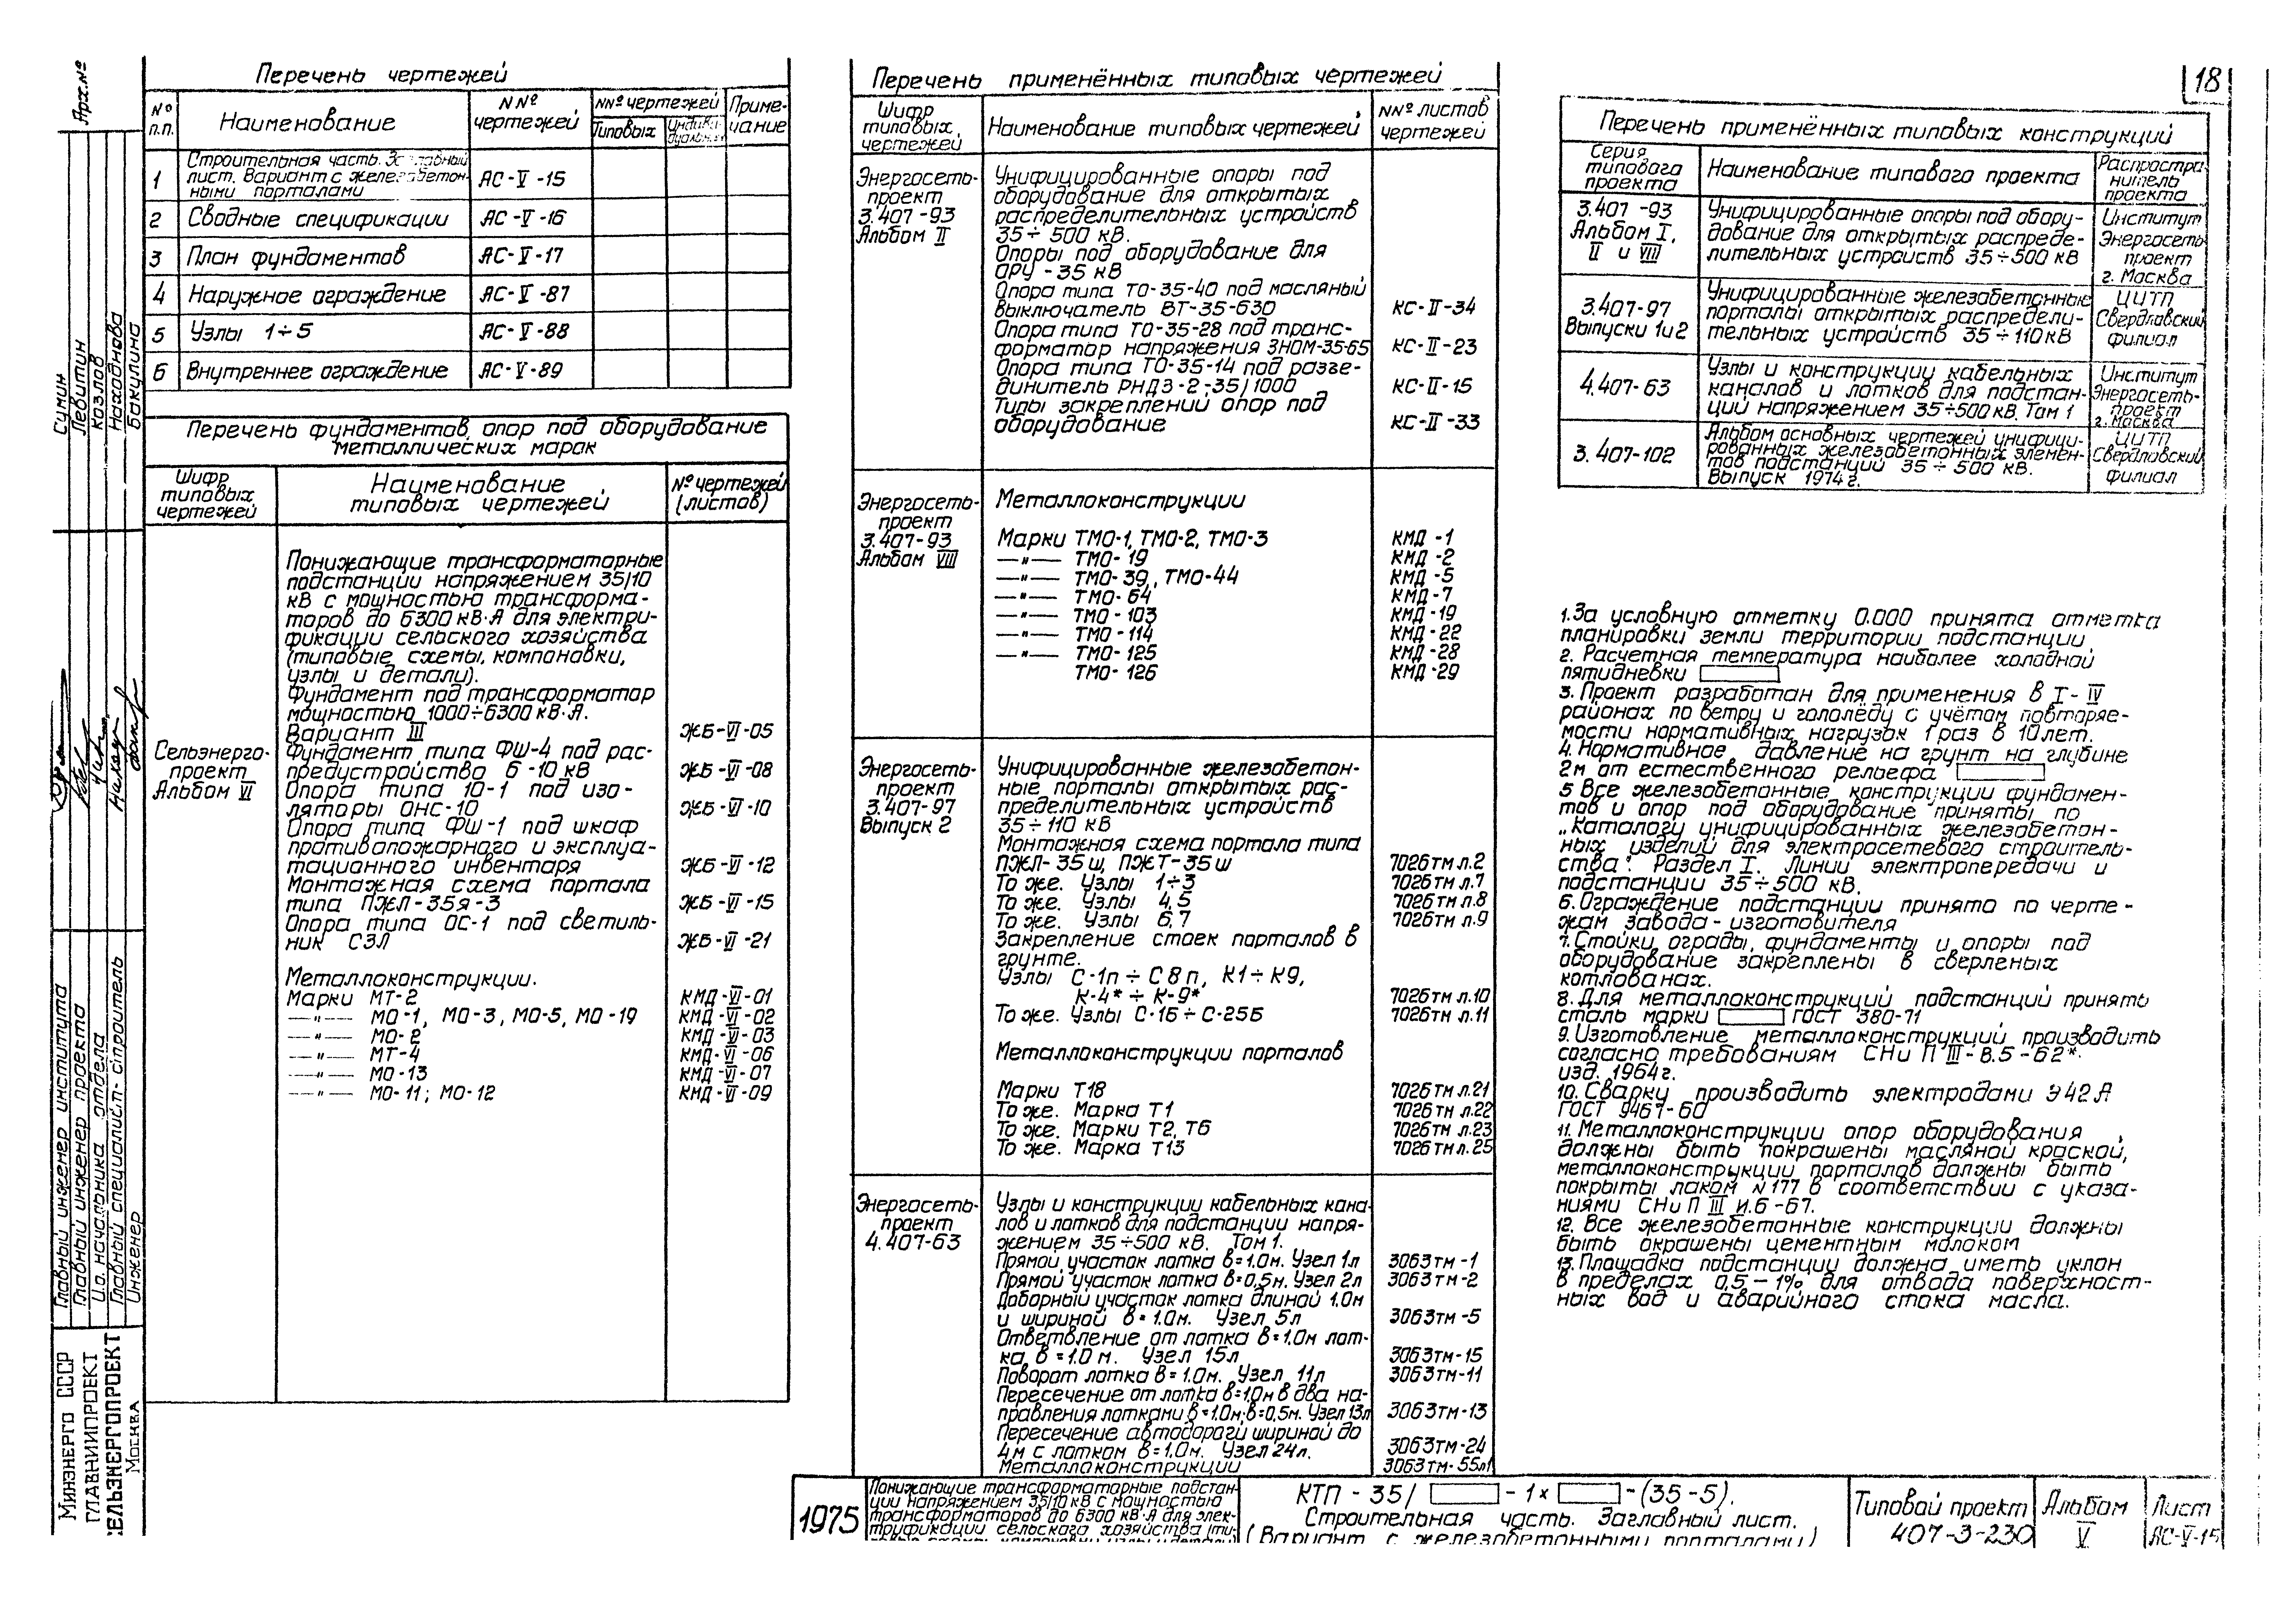 18
Арх.№
Перечень чертежей
№ п.п.
Наименование
NN° чертежей
NN° чертежей
Типовых
Индиви-дуальных
Приме-чание
1
Строительная часть. Заглавный
лист. Вариант с железобетон-
ными порталами
АС-V-15
2 Сводные спецификации АС-V-16
3 План фундаментов АС-V-17
4 Наружное ограждение АС-V-87
5 Узлы 1÷5 АС-V-88
6 Внутреннее ограждение АС-V-89
Перечень фундаментов, опор под оборудование
металлических марок
Шифр
типовых
чертежей
Наименование
типовых чертежей
№ чертежей
(листов)
Сельэнерго-
проект
Альбом VI
Понижающие трансформаторные
подстанции напряжением 35/10
кВ с мощностью трансформа-
торов до 6300 кВ·А для электри-
фикации сельского хозяйства
(типовые схемы, компоновки,
узлы и детали).
Фундамент под трансформатор
мощностью 1000÷6300 кВ·А.
Вариант III ЖБ-VI-05
Фундамент типа ФШ-4 под рас-
предустройство 6-10 кВ ЖБ-VI-08
Опора типа 10-1 под изо-
ляторы ОНС-10 ЖБ-VI-10
Опора типа ФШ-1 под шкаф
противопожарного и эксплуа-
тационного инвентаря ЖБ-VI-12
Монтажная схема портала
типа ПЖЛ-35Я-3 ЖБ-VI-15
Опора типа ОС-1 под светиль-
ник СЗЛ ЖБ-VI-21
Металлоконструкции.
Марки МТ-2 КМД-VI-01
—"— МО-1, МО-3, МО-5, МО-19 КМД-VI-02
—"— МО-2 КМД-VI-03
—"— МТ-4 КМД-VI-06
—"— МО-13 КМД-VI-07
—"— МО-11; МО-12 КМД-VI-09
Перечень применённых типовых чертежей
Шифр
типовых
чертежей
Наименование типовых чертежей
NN° листов
чертежей
Энергосеть-
проект
3.407-93
Альбом II
Унифицированные опоры под
оборудование для открытых
распределительных устройств
35÷500 кВ.
Опоры под оборудование для
ОРУ-35 кВ
Опора типа ТО-35-40 под масляный
выключатель ВТ-35-630 КС-II-34
Опора типа ТО-35-28 под транс-
форматор напряжения ЗНОМ-35-65 КС-II-23
Опора типа ТО-35-14 под разъе-
динитель РНДЗ-2-35/1000 КС-II-15
Типы закреплений опор под
оборудование КС-II-33
Энергосеть-
проект
3.407-93
Альбом VIII
Металлоконструкции
Марки ТМО-1, ТМО-2, ТМО-3 КМД-1
—"— ТМО-19 КМД-2
—"— ТМО-39, ТМО-44 КМД-5
—"— ТМО-64 КМД-7
—"— ТМО-103 КМД-19
—"— ТМО-114 КМД-22
—"— ТМО-125 КМД-28
ТМО-126 КМД-29
Энергосеть-
проект
3.407-97
Выпуск 2
Унифицированные железобетон-
ные порталы открытых рас-
пределительных устройств
35÷110 кВ
Монтажная схема портала типа
ПЖЛ-35Ш, ПЖТ-35Ш 7026ТМ л.2
То же. Узлы 1÷3 7026ТМ л.7
То же. Узлы 4,5 7026ТМ л.8
То же. Узлы 6,7 7026ТМ л.9
Закрепление стоек порталов в
грунте.
Узлы С-1п÷С8п, К1÷К9,
К-4*÷К-9* 7026ТМ л.10
То же. Узлы С-1Б÷С-25Б 7026ТМ л.11
Металлоконструкции порталов
Марки Т18 7026ТМ л.21
То же. Марка Т1 7026ТМ л.22
То же. Марки Т2, Т6 7026ТМ л.23
То же. Марка Т13 7026ТМ л.25
Энергосеть-
проект
4.407-63
Узлы и конструкции кабельных кана-
лов и лотков для подстанции напря-
жением 35÷500 кВ. Том 1.
Прямой участок лотка в=1.0м. Узел 1л 3063ТМ-1
Прямой участок лотка в=0,5м. Узел 2л 3063ТМ-2
Доборный участок лотка длиной 1.0м
и шириной в=1.0м. Узел 5л 3063ТМ-5
Ответвление от лотка в=1.0м лот-
ка в=1.0м. Узел 15л 3063ТМ-15
Поворот лотка в=1.0м. Узел 11л 3063ТМ-11
Пересечение от лотка в=1.0м в два на-
правления лотками в=1.0м; в=0,5м. Узел 13л 3063ТМ-13
Пересечение автодороги шириной до
4м с лотком в=1.0м. Узел 24л. 3063ТМ-24
Металлоконструкции 3063ТМ-55л1
Перечень применённых типовых конструкций
Серия
типового
проекта
Наименование типового проекта
Распростра-
нитель
проекта
3.407-93
Альбом I,
II и VIII
Унифицированные опоры под обору-
дование для открытых распреде-
лительных устройств 35÷500 кВ
Институт
Энергосеть-
проект
г. Москва
3.407-97
Выпуски 1 и 2
Унифицированные железобетонные
порталы открытых распредели-
тельных устройств 35÷110 кВ
ЦИТП
Свердловский
филиал
4.407-63
Узлы и конструкции кабельных
каналов и лотков для подстан-
ций напряжением 35÷500 кВ. Том 1
Институт
Энергосеть-
проект
г. Москва
3.407-102
Альбом основных чертежей унифици-
рованных железобетонных элемен-
тов подстанций 35÷500 кВ.
Выпуск 1974г.
ЦИТП
Свердловский
филиал
1. За условную отметку 0.000 принята отметка
планировки земли территории подстанции.
2. Расчетная температура наиболее холодной
пятидневки
3. Проект разработан для применения в I-IV
районах по ветру и гололёду с учётом повторяе-
мости нормативных нагрузок 1 раз в 10 лет.
4. Нормативное давление на грунт на глубине
2м от естественного рельефа
5 Все железобетонные конструкции фундамен-
тов и опор под оборудование приняты по
„Каталогу унифицированных железобетон-
ных изделий для электросетевого строитель-
ства". Раздел I. Линии электропередачи и
подстанции 35÷500 кВ.
6. Ограждение подстанции принято по черте-
жам завода-изготовителя
7. Стойки ограды, фундаменты и опоры под
оборудование закреплены в сверленых
котлованах.
8. Для металлоконструкций подстанций принять
сталь марки ГОСТ 380-71
9. Изготовление металлоконструкций производить
согласно требованиям СНиП III-В.5-62*
изд. 1964г.
10. Сварку производить электродами Э42А
ГОСТ 9467-60
11. Металлоконструкции опор оборудования
должны быть покрашены масляной краской,
металлоконструкции порталов должны быть
покрыты лаком №177 в соответствии с указа-
ниями СНиП III И.6-67.
12. Все железобетонные конструкции должны
быть окрашены цементным молоком
13. Площадка подстанции должна иметь уклон
в пределах 0,5-1% для отвода поверхност-
ных вод и аварийного стока масла.
Главный инженер института Сумин
Главный инженер проекта Левитин
И.о. начальника отдела Козлов
Главный специалист-строитель Находнова
Инженер Бакулина
Минэнерго СССР
ГЛАВНИИПРОЕКТ
СЕЛЬЭНЕРГОПРОЕКТ
Москва
1975
Понижающие трансформаторные подстан-
ции напряжением 35/10 кВ с мощностью
трансформаторов до 6300 кВ·А для элек-
трификации сельского хозяйства (ти-
повые схемы, компоновки, узлы и детали)
КТП-35/ -1× -(35-5).
Строительная часть. Заглавный лист.
(Вариант с железобетонными порталами)
Типовой проект
407-3-230
Альбом
V
Лист
АС-V-15